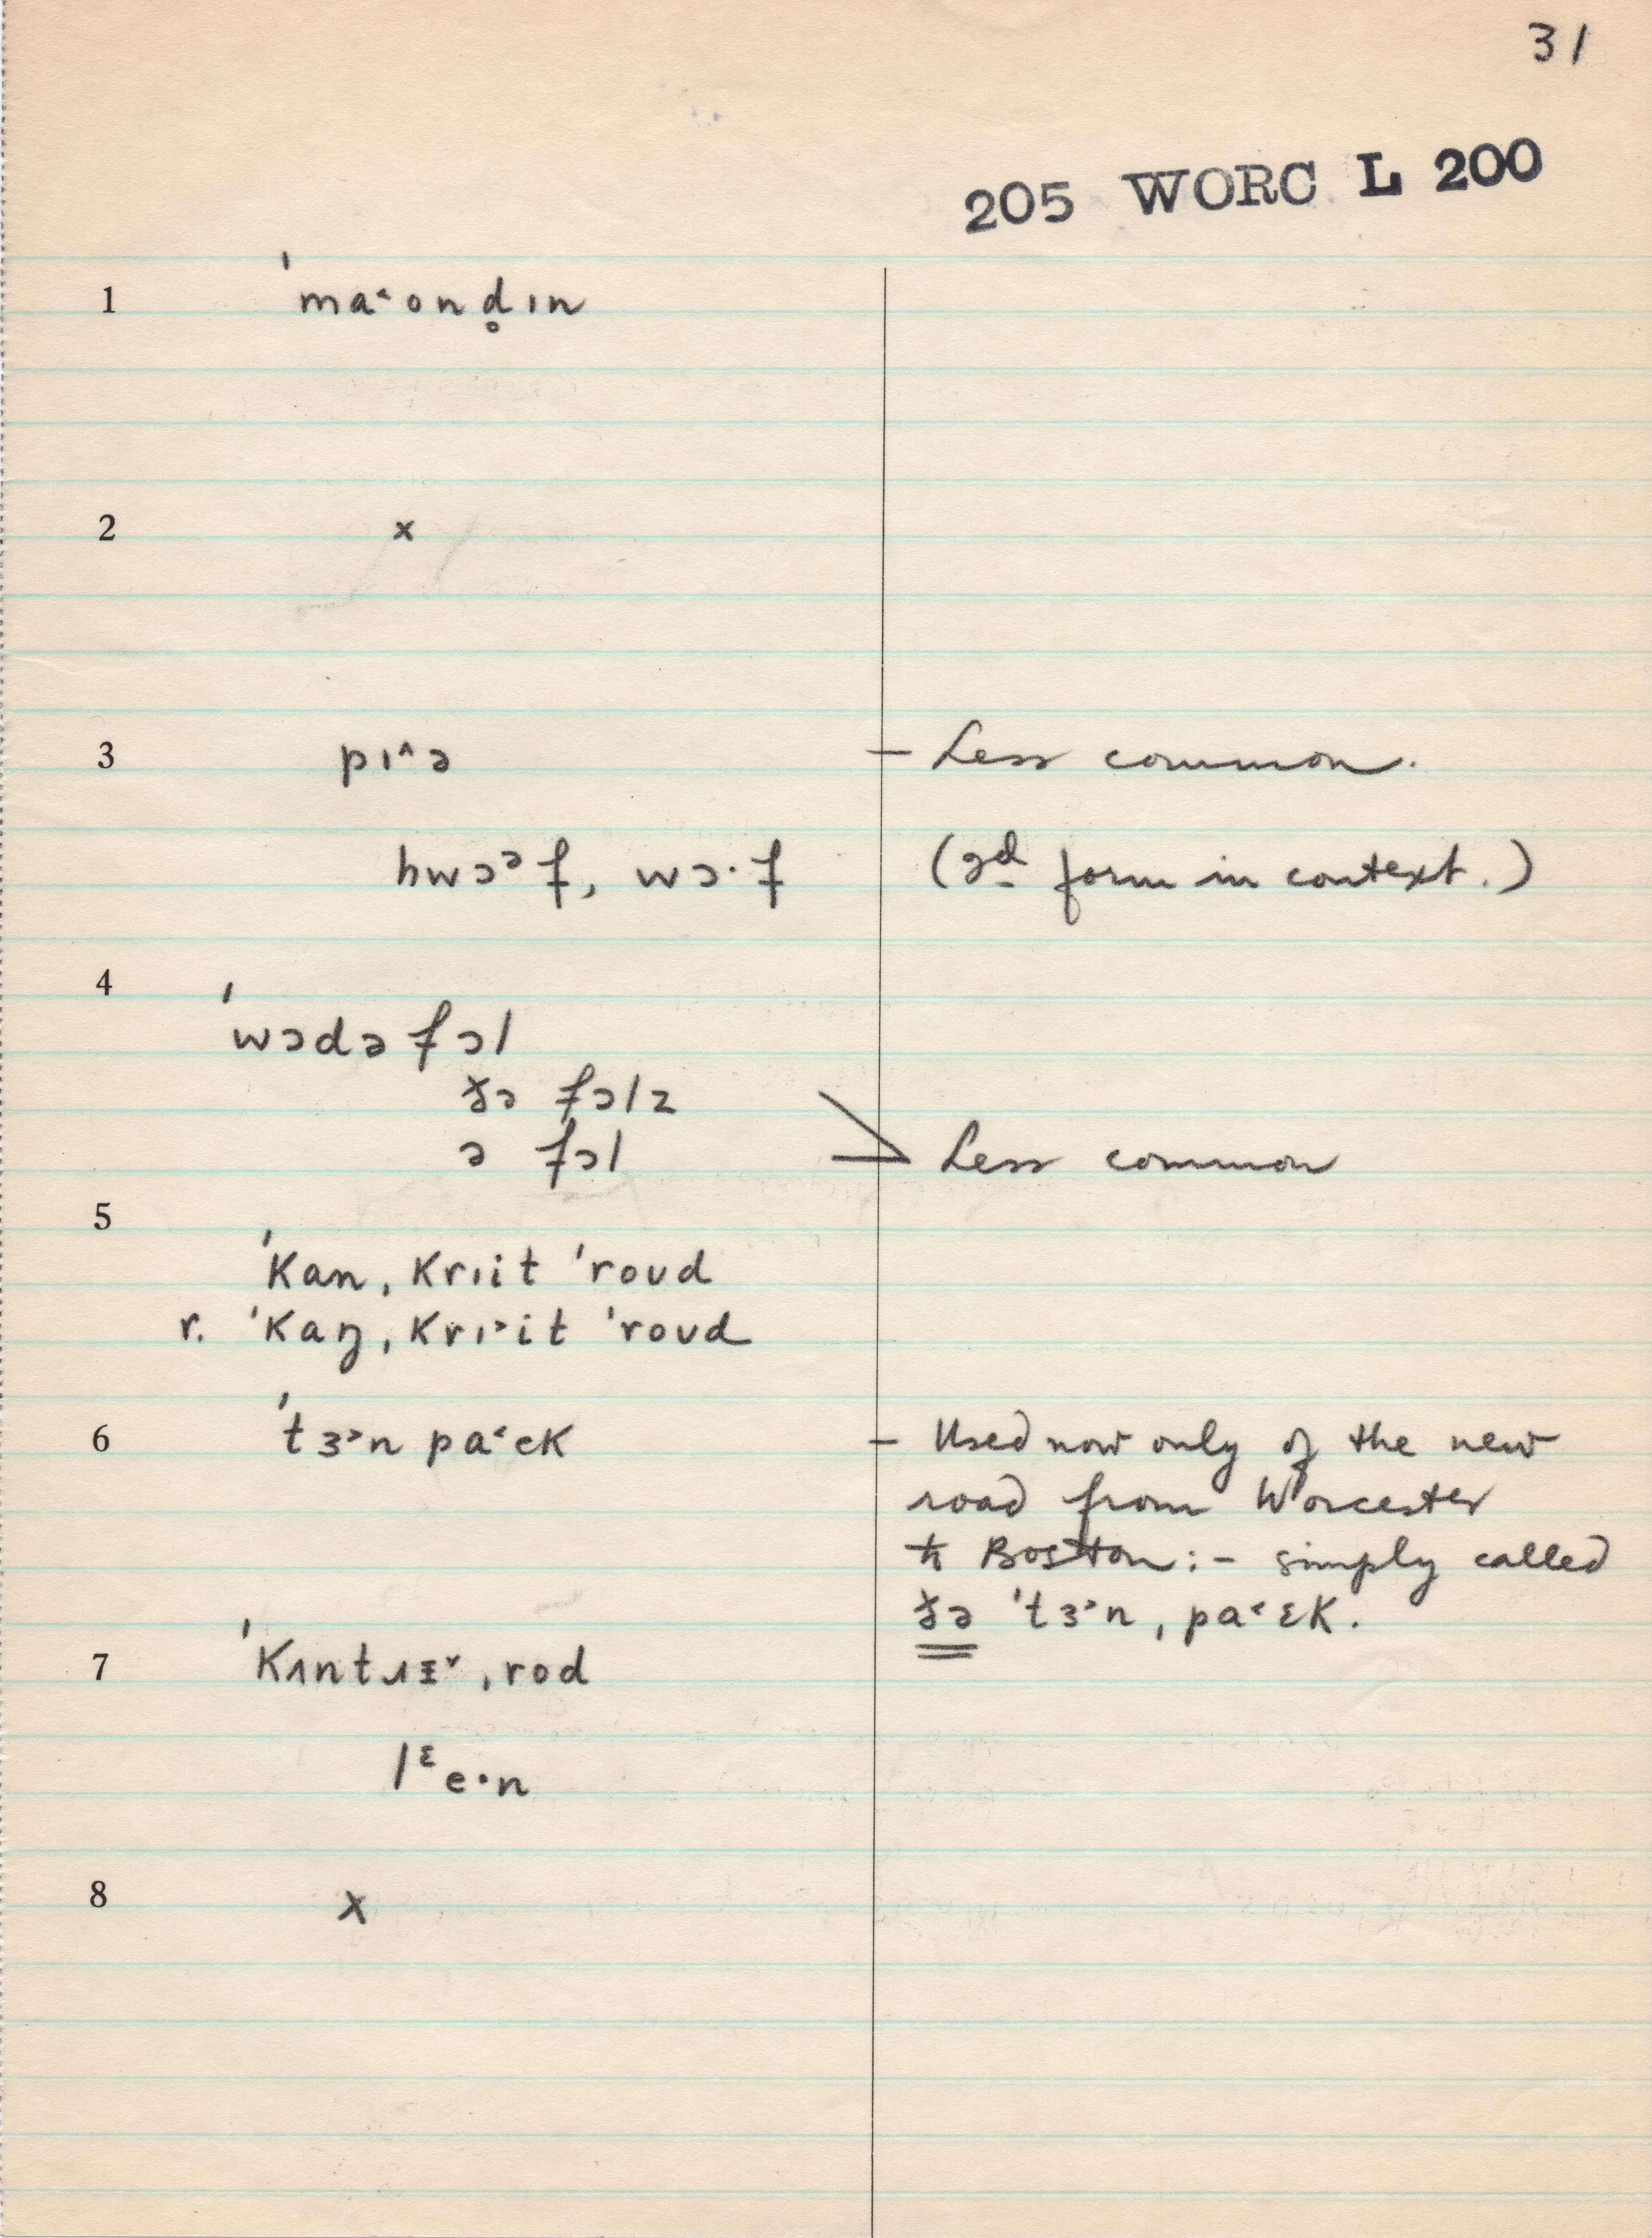 31
205 WORC L 200
1 ˈma˂ondֶ̥ın
2 x
3 pı^ə – Less common.
hwɔᵊf, wɔ·f (2d form in context.)
4 ˈwɔdə fɔl
ðə fɔlz
ə fɔl Less common
5
ˈkan ˌkrıit ˈroʊd
r. ˈkaŋ ˌkrı˃it ˈroʊd
6 ˈtɜ˃n pa˂ɛk – Used now only of the new
road from Worcester
to Boston:– simply called
ðə ˈtɜ˃n ˌpa˂ɛk.
7 ˈkʌntɹɪ˅ ˌrod
lᵋe·n
8 x